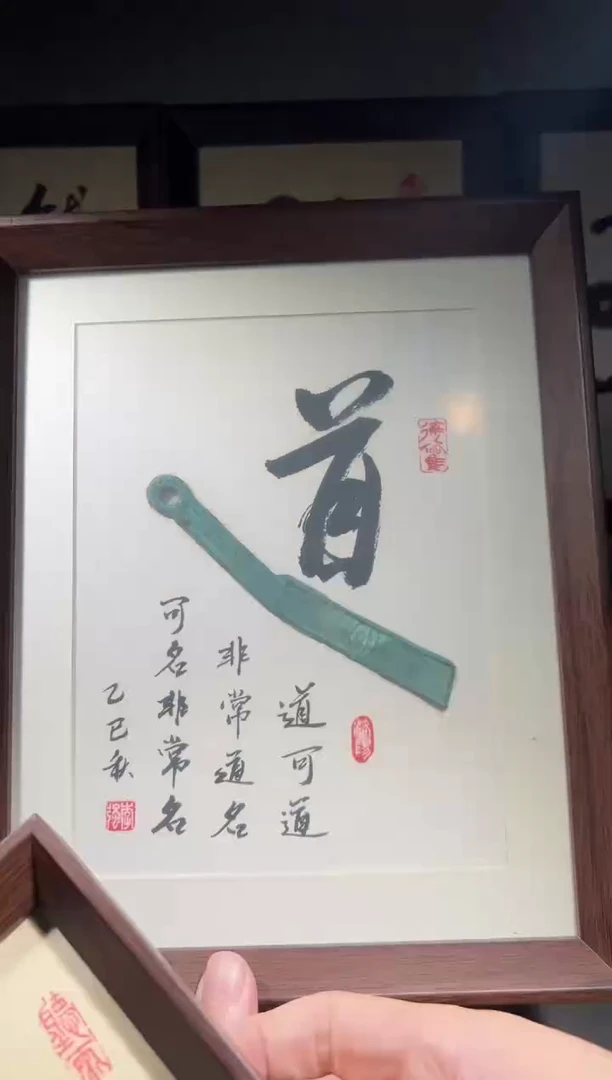 道
道可道
非常道名
可名非常名
乙巳秋